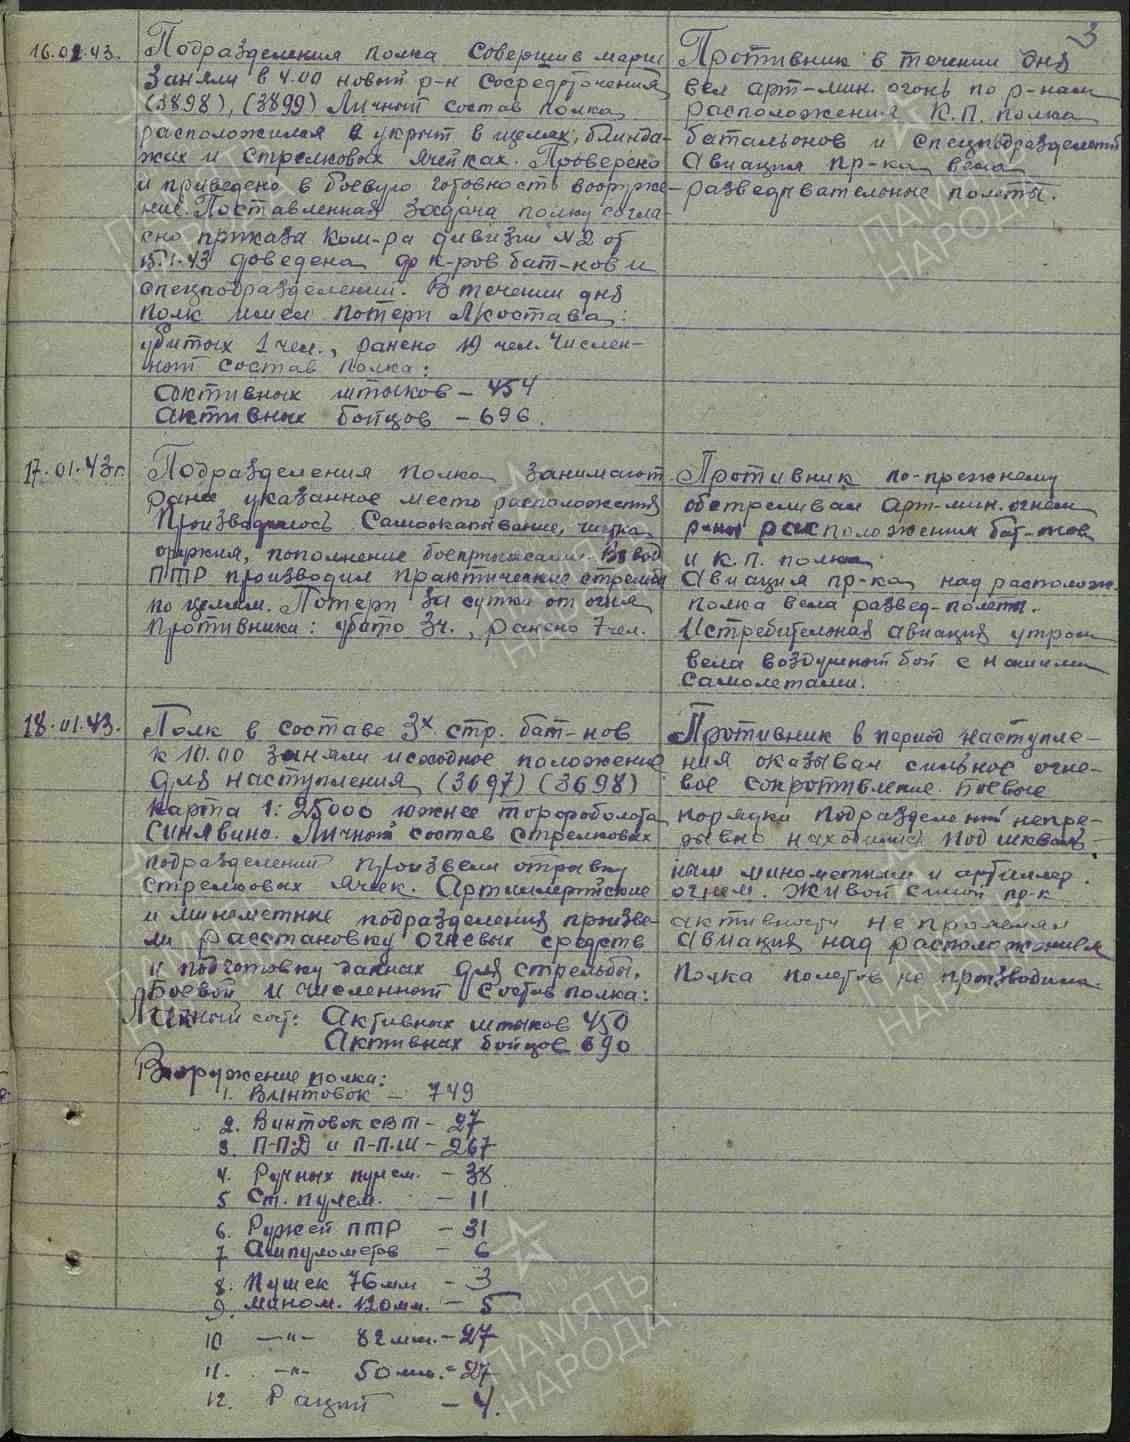 3
16.01.43.
Подразделения полка совершив марш
заняли в 4.00 новый р-н сосредоточения
(3898), (3899) Личный состав полка
расположился в укрыт в щелях, блинда-
жах и стрелковых ячейках. Проверено
и приведено в боевую готовность вооруже-
ние. Поставленная задача полку согла-
сно приказа Ком-ра дивизии №2 от
15.1.43 доведена до к-ров бат-нов и
спецподразделений. В течении дня
полк имел потери л/состава:
убитых 1 чел., ранено 19 чел. Числен-
ный состав полка:
активных штыков - 454
активных бойцов - 696.
Противник в течении дня
вел арт-мин. огонь по р-нам
расположения К.П. полка
батальонов и спецподразделений
Авиация пр-ка вела
разведывательные полеты.
17.01.43г.
Подразделения полка занимают
ранее указанное место расположения
Производилось самоокапывание, чистка
оружия, пополнение боеприпасами. Взвод
ПТР производил практические стрельбы
по целям. Потери за сутки от огня
противника: убито 3ч., ранено 7 чел.
Противник по-прежнему
обстреливал арт-мин. огнем
район расположения бат-нов
и К.П. полка
Авиация пр-ка над располож.
полка вела развед-полеты.
Истребительная авиация утром
вела воздушный бой с нашими
самолетами.
18.01.43.
Полк в составе 3х стр. бат-нов
к 10.00 заняли исходное положение
для наступления (3697) (3698)
карта 1:25000 южнее торфоболота
Синявино. Личный состав стрелковых
подразделений произвели отрывку
стрелковых ячеек. Артиллерийские
и минометные подразделения произве-
ли расстановку огневых средств
и подготовку данных для стрельбы.
Боевой и численный состав полка:
Личный сост: Активных штыков 450
Активных бойцов 690
Вооружение полка:
1. Винтовок - 749
2. Винтовок СВТ - 27
3. П-П.Д и П-П.Ш - 267
4. Ручных пулем. - 38
5 Ст. пулем. - 11
6. Ружей ПТР - 31
7 Ампулометов - 6
8. Пушек 76мм - 3
9. Мином. 120мм. - 5
10 -"- 82мм. - 27
11. -"- 50мм. - 27
12. Раций - 4.
Противник в период наступле-
ния оказывал сильное огне-
вое сопротивление. Боевые
порядки подразделений непре-
рывно находились под шкваль-
ным минометным и артиллер.
огнем. Живой силой пр-к
активности не проявлял
Авиация над расположением
полка полетов не производила.
ПАМЯТЬ
НАРОДА
ПАМЯТЬ
НАРОДА
ПАМЯТЬ
НАРОДА
ПАМЯТЬ
НАРОДА
ПАМЯТЬ
НАРОДА
ПАМЯТЬ
НАРОДА